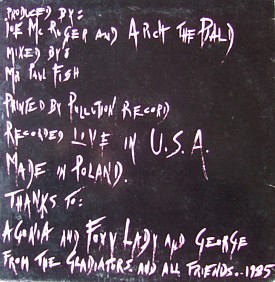 PRODUCED BY:
JOE MC ROGER AND ARCH THE BALD
MIXED BY:
MR PAUL FISH
PRINTED BY POLLUTION RECORD
RECORDED LIVE IN U.S.A.
MADE IN POLAND.
THANKS TO:
AGONIA AND FOXY LADY AND GEORGE
FROM THE GLADIATORS AND ALL FRIENDS.. 1985